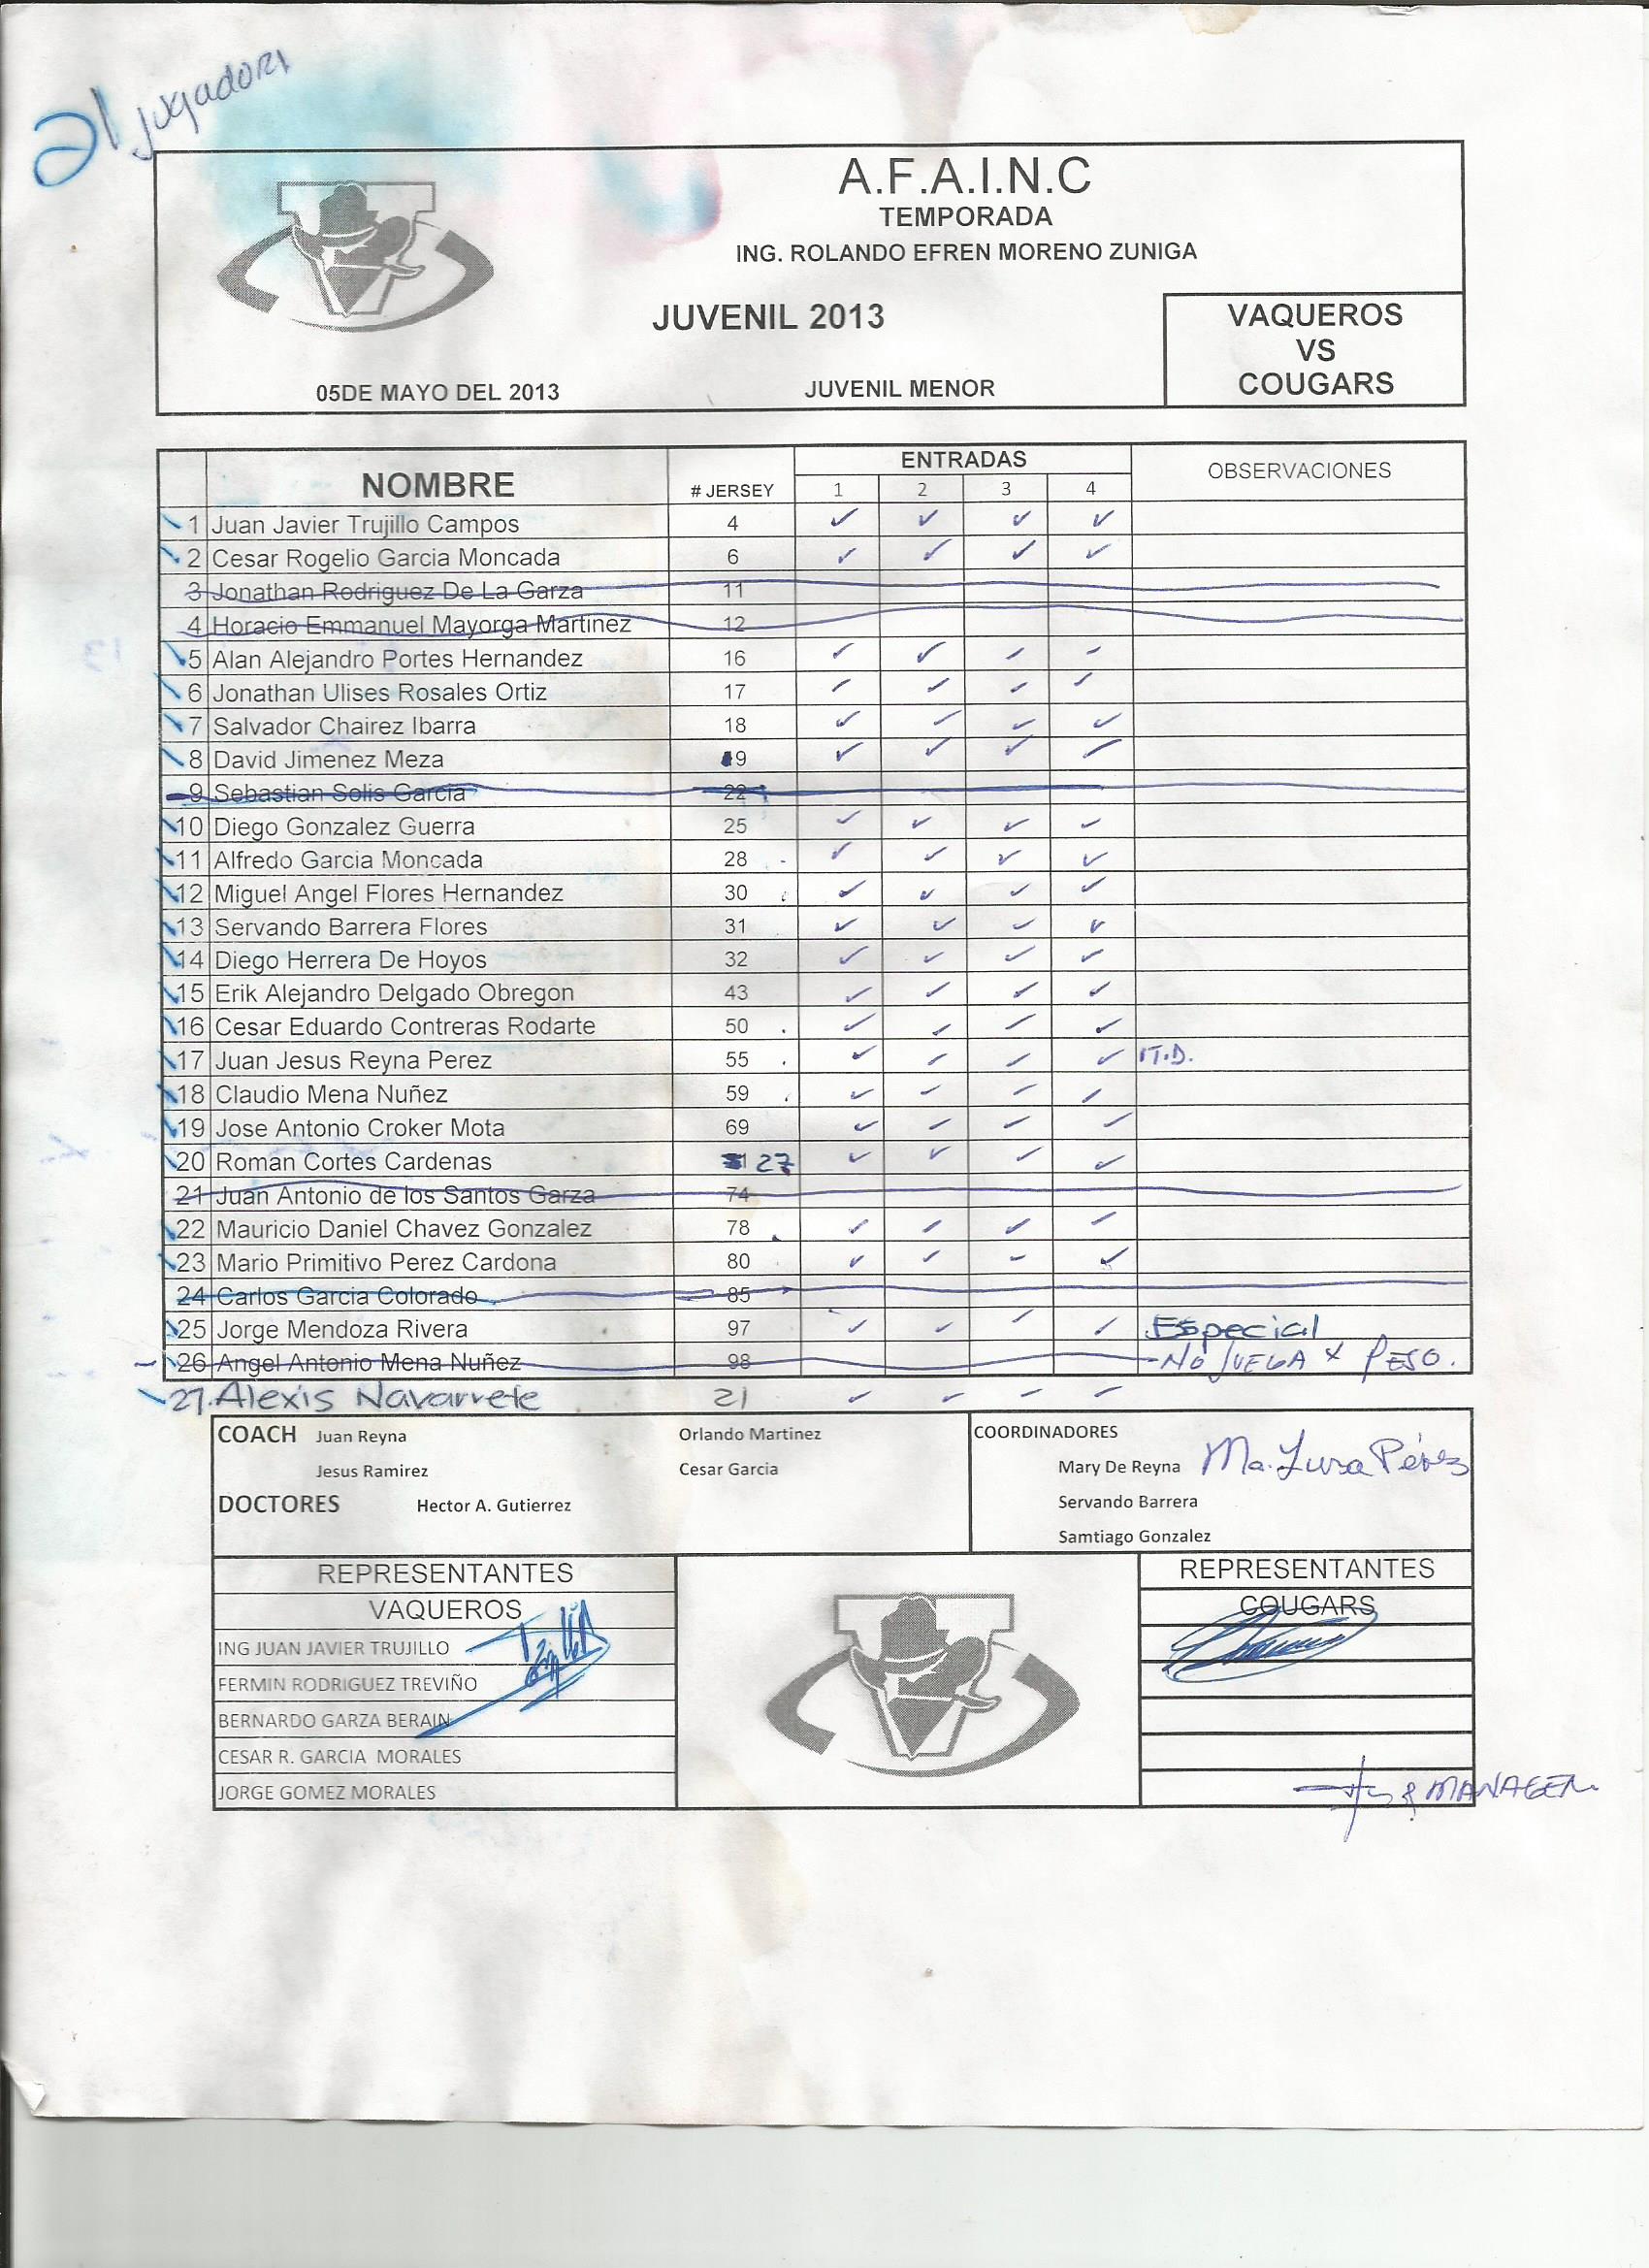 21 jugadores
A.F.A.I.N.C
TEMPORADA
ING. ROLANDO EFREN MORENO ZUNIGA
JUVENIL 2013
VAQUEROS
VS
COUGARS
05DE MAYO DEL 2013 JUVENIL MENOR
NOMBRE # JERSEY ENTRADAS OBSERVACIONES
1 2 3 4
1 Juan Javier Trujillo Campos 4 ✓ ✓ ✓ ✓
2 Cesar Rogelio Garcia Moncada 6 ✓ ✓ ✓ ✓
3 Jonathan Rodriguez De La Garza 11
4 Horacio Emmanuel Mayorga Martinez 12
5 Alan Alejandro Portes Hernandez 16 ✓ ✓ ✓ ✓
6 Jonathan Ulises Rosales Ortiz 17 ✓ ✓ ✓ ✓
7 Salvador Chairez Ibarra 18 ✓ ✓ ✓ ✓
8 David Jimenez Meza 9 ✓ ✓ ✓ ✓
9 Sebastian Solis Garcia 22
10 Diego Gonzalez Guerra 25 ✓ ✓ ✓ ✓
11 Alfredo Garcia Moncada 28 ✓ ✓ ✓ ✓
12 Miguel Angel Flores Hernandez 30 ✓ ✓ ✓ ✓
13 Servando Barrera Flores 31 ✓ ✓ ✓ ✓
14 Diego Herrera De Hoyos 32 ✓ ✓ ✓ ✓
15 Erik Alejandro Delgado Obregon 43 ✓ ✓ ✓ ✓
16 Cesar Eduardo Contreras Rodarte 50 ✓ ✓ ✓ ✓
17 Juan Jesus Reyna Perez 55 ✓ ✓ ✓ ✓ T.D.
18 Claudio Mena Nuñez 59 ✓ ✓ ✓ ✓
19 Jose Antonio Croker Mota 69 ✓ ✓ ✓ ✓
20 Roman Cortes Cardenas 27 ✓ ✓ ✓ ✓
21 Juan Antonio de los Santos Garza 74
22 Mauricio Daniel Chavez Gonzalez 78 ✓ ✓ ✓ ✓
23 Mario Primitivo Perez Cardona 80 ✓ ✓ ✓ ✓
24 Carlos Garcia Colorado 85
25 Jorge Mendoza Rivera 97 ✓ ✓ ✓ ✓ Especial
26 Angel Antonio Mena Nuñez 98 NO JUEGA X PESO.
27. Alexis Navarrete 21 ✓ ✓ ✓ ✓
COACH Juan Reyna Orlando Martinez
Jesus Ramirez Cesar Garcia
DOCTORES Hector A. Gutierrez
COORDINADORES
Mary De Reyna Ma. Luisa Pérez
Servando Barrera
Samtiago Gonzalez
REPRESENTANTES
VAQUEROS
ING JUAN JAVIER TRUJILLO
FERMIN RODRIGUEZ TREVIÑO
BERNARDO GARZA BERAIN
CESAR R. GARCIA MORALES
JORGE GOMEZ MORALES
REPRESENTANTES
COUGARS
MANAGER